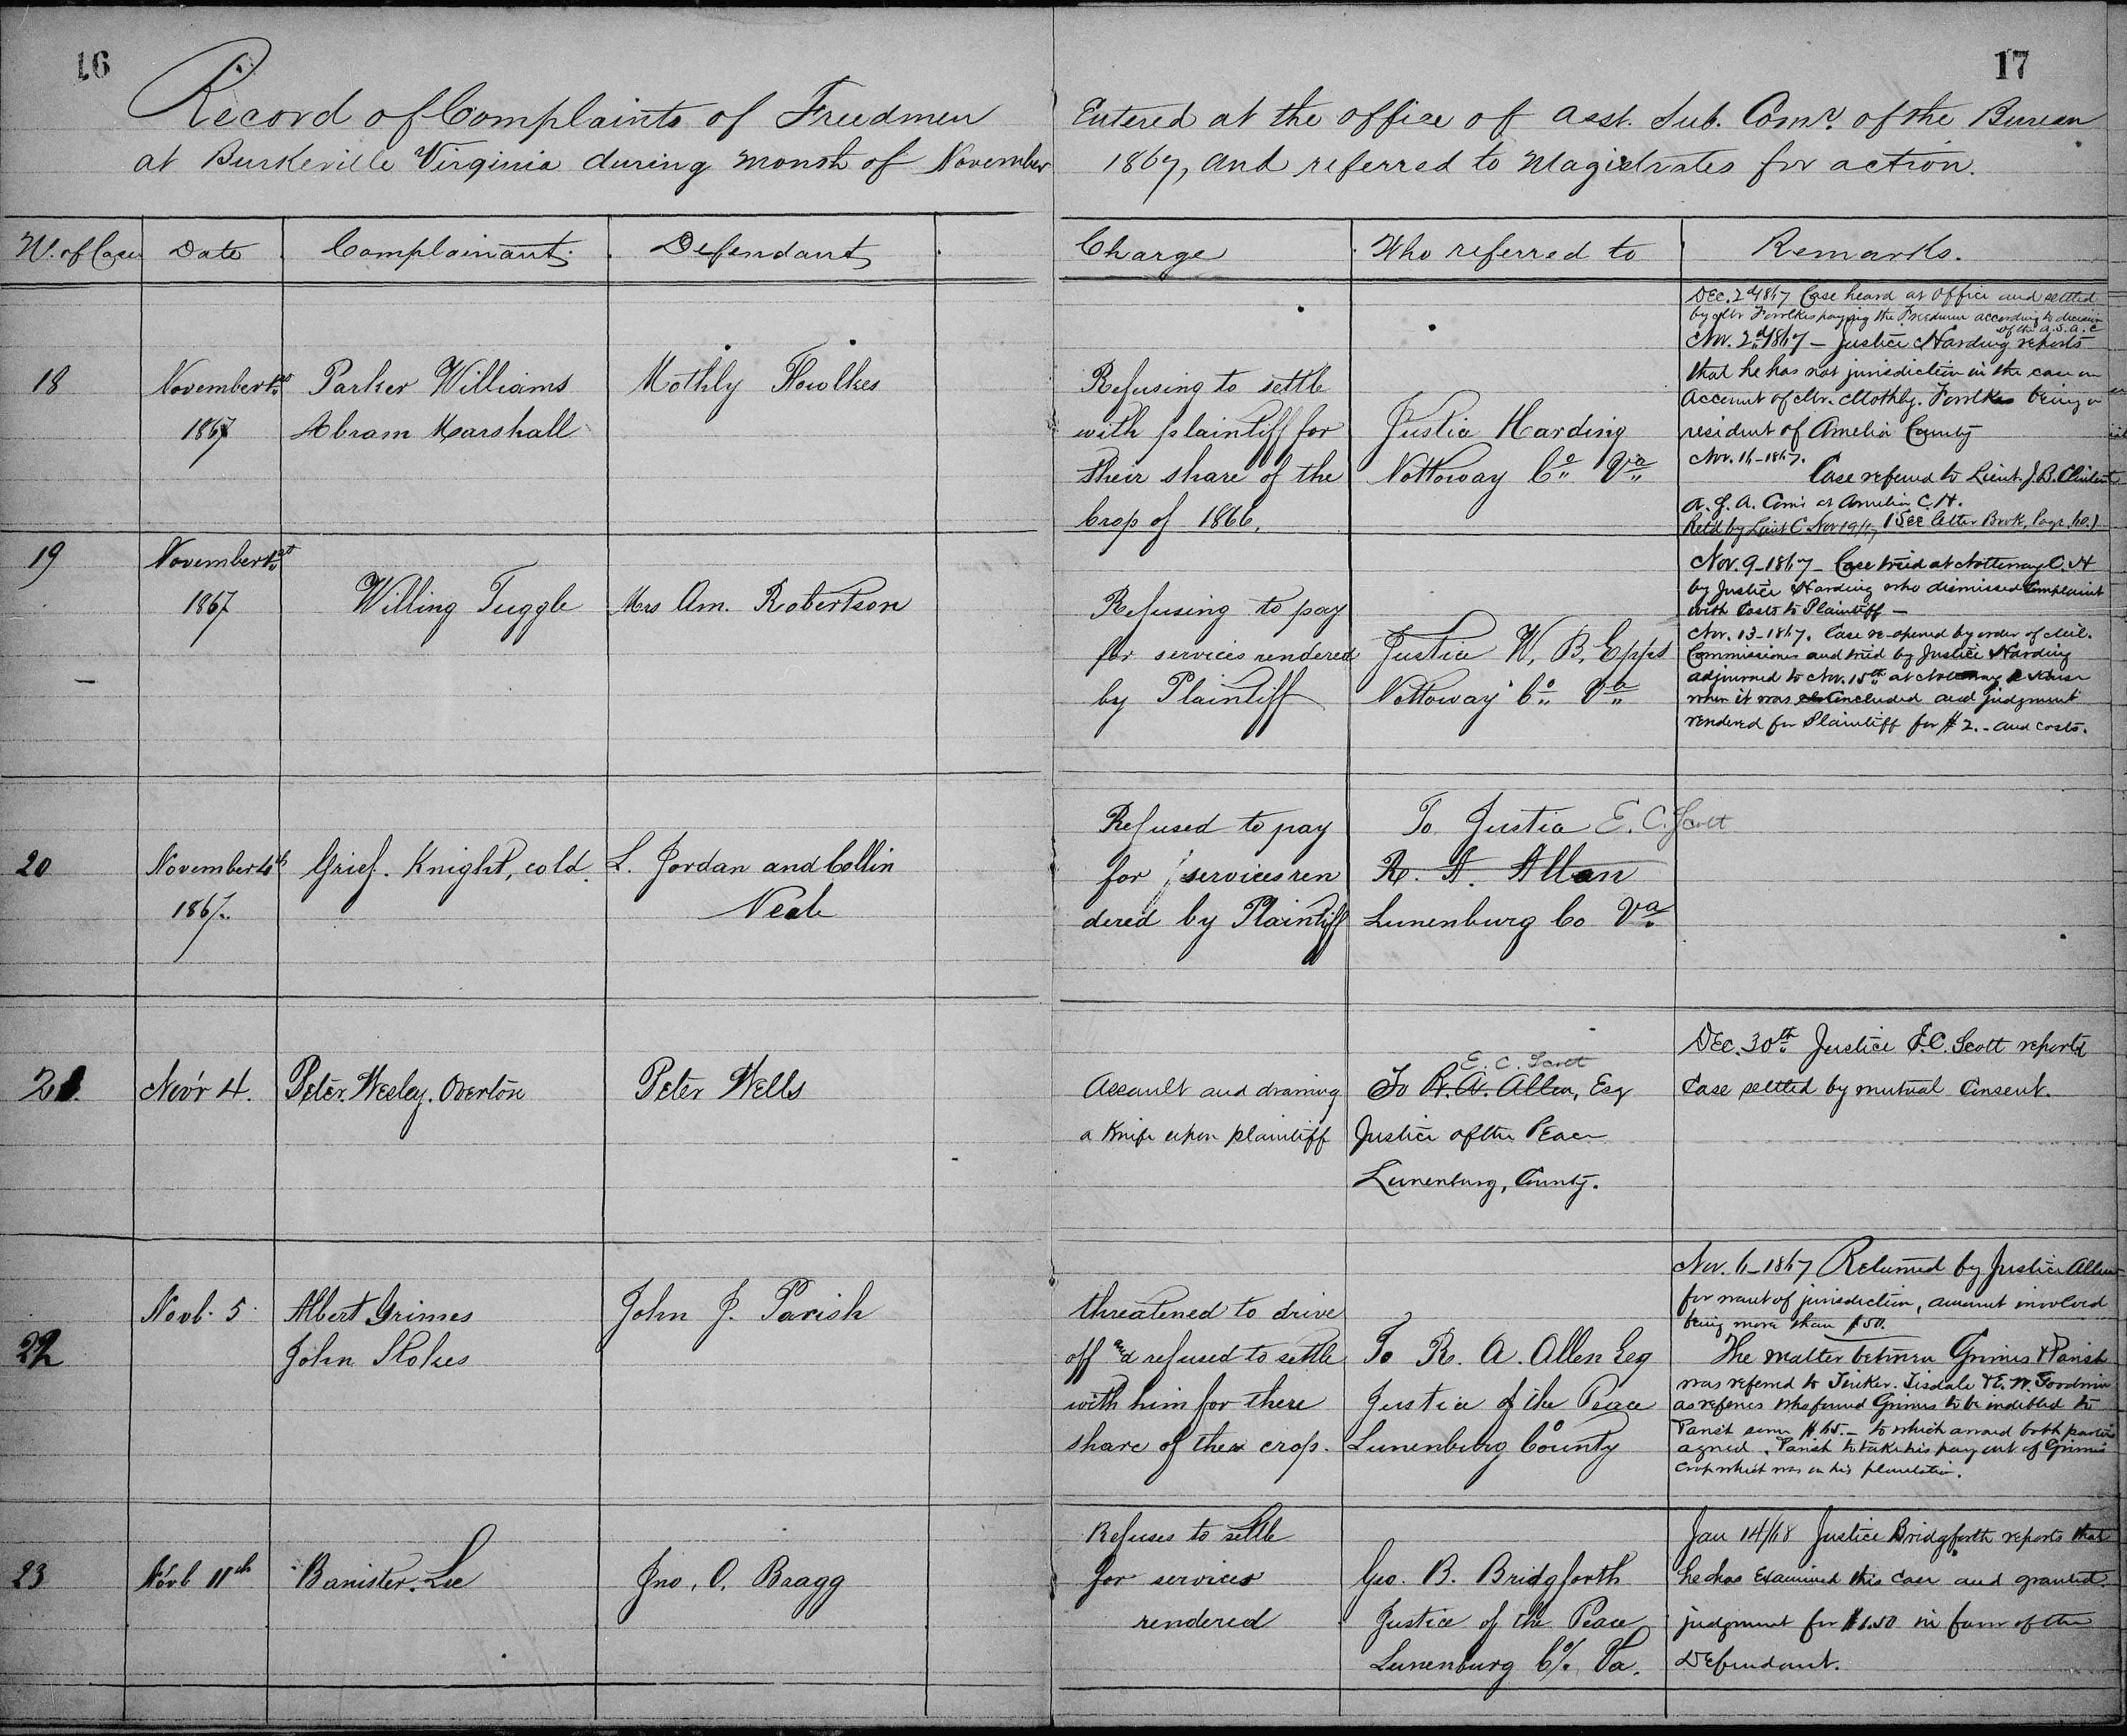 16
Record of Complaints of Freedmen
at Burkeville Virginia during month of November
17
Entered at the office of asst. Sub. Comr. of the Bureau
1867, and referred to Magistrates for action.
N. of Case
Date
Complainant.
Defendant
Charge
Who referred to
Remarks.
18
November 1st
1867
Parker Williams
Abram Marshall
Mothly Fowlkes
Refusing to settle
with plaintiff for
their share of the
Crop of 1866.
Justice Harding
Nottoway Co. Va
Dec. 2d 1867 Case heard at Office and settled
by Mr Fowlkes paying the Freedmen according to decision
of the A.S.A.C
Nov. 2d 1867 — Justice Harding reports
that he has not jurisdiction in the case on
account of Mr. Mothly. Fowlkes being a
resident of Amelia County
Nov. 16-1867.
Case referred to Lieut. J.B. Clinton
at Amelia C.H.
Retd by Lieut C. Nov 19/67 (See Letter Book, Page 60.)
19
November 1st
1867
Willing Tuggle
Mrs Am. Robertson
Refusing to pay
for services rendered
by Plaintiff
Justice W. B. Epps
Nottoway Co. Va
Nov. 9-1867 - Case tried at Nottoway C. H
by Justice Harding who dismissed Complaint
with Costs to Plaintiff —
Nov. 13-1867. Case re-opened by order of Mil.
Commissioner and tried by Justice Harding
adjourned to Nov. 15th at Nottoway C House
when it was concluded and judgment
rendered for Plaintiff for $2.- and costs.
20
November 4th
1867.
Grief. Knight, cold.
L. Jordan and Collin
Neal
Refused to pay
for services ren
dered by Plaintiff
To Justice E. C. Scott
R. A. Allen
Lunenburg Co Va.
21.
Nov'r 4.
Peter. Wesley. Overton
Peter Wells
Assault and drawing
a Knife upon plaintiff
E. C. Scott
To R. A. Allen, Esq
Justice of the Peace
Lunenburg, County.
Dec. 30th Justice E.C. Scott reports
Case settled by mutual Consent.
22
Novb. 5
Albert Grimes
John Stokes
John J. Parish
threatened to drive
off and refused to settle
with him for there
share of the crop.
To R. A. Allen Esq
Justice of the Peace
Lunenburg County
Nov. 6-1867 Returned by Justice Allen
for want of jurisdiction, amount involved
being more than $50.
The matter between Grimes & Parish
was referred to Tisdale & E. W. Goodwin
as referees who found Grimes to be indebted to
Parish some $65.- to which award both parties
agreed. Parish to take his pay out of Grimes
crop which was on his plantation.
23
Novb 11th
Banister. Lee
Jno. O. Bragg
Refuses to settle
for services
rendered
Geo. B. Bridgforth
Justice of the Peace
Lunenburg Co. Va.
Jan 14/68 Justice Bridgforth reports that
he has Examined this Case and granted
judgment for $1.50 in favor of the
Defendant.